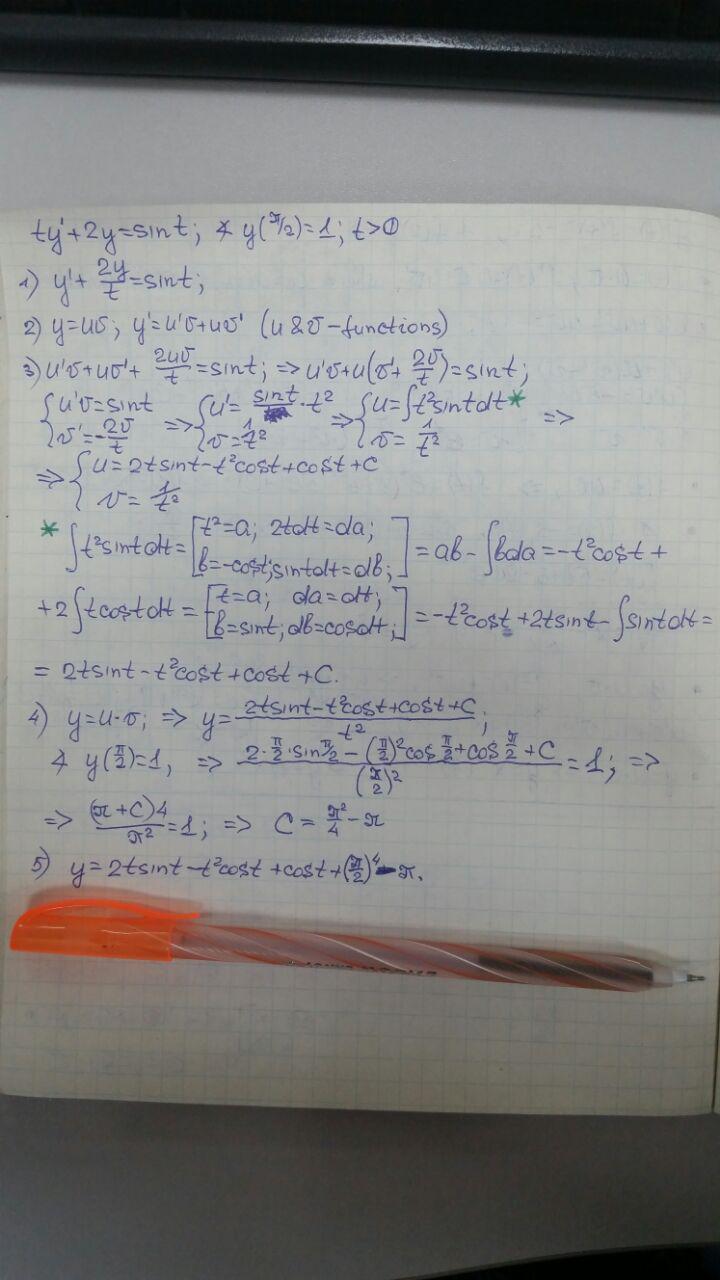 ty'+2y=sint; ∢ y(π/2)=1; t>0
1) y'+ 2y/t=sint;
2) y=uv; y'=u'v+uv' (u & v-functions)
3) u'v+uv'+ 2uv/t=sint; => u'v+u(v'+ 2v/t)=sint;
{u'v=sint => {u'= sint/ · t² => {u=∫t²sintdt* =>
{v'=-2v/t {v=1/t² {v= 1/t²
=> {u=2tsint-t²cost+cost+C
{v= 1/t²
* ∫t²sintdt=[t²=a; 2tdt=da; b=-cost; sintdt=db;] =ab-∫bda=-t²cost+
+2∫tcostdt=[t=a; da=dt; b=sint; db=cosdt;] =-t²cost+2tsint-∫sintdt=
= 2tsint-t²cost+cost+C.
4) y=u·v; => y= (2tsint-t²cost+cost+C)/t²;
∢ y(π/2)=1, => (2·π/2·sinπ/2-(π/2)²cos π/2+cos π/2+C)/(π/2)² =1; =>
=> (π+C)4/π²=1; => C= π²/4-π
5) y=2tsint-t²cost+cost+(π/2)⁴-π.